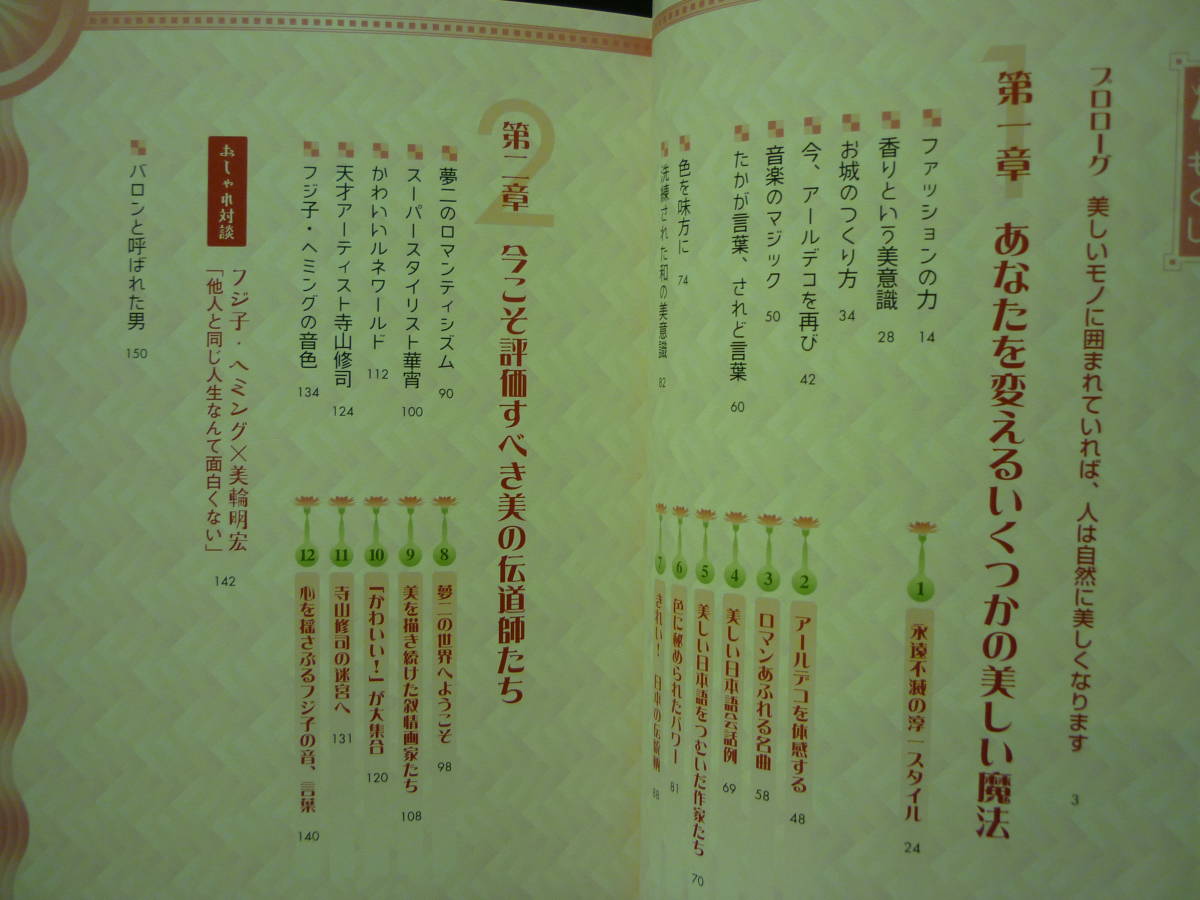 もくじ
プロローグ 美しいモノに囲まれていれば、人は自然に美しくなります 3
1
第一章 あなたを変えるいくつかの美しい魔法
ファッションの力 14
香りという美意識 28
お城のつくり方 34
今、アールデコを再び 42
音楽のマジック 50
たかが言葉、されど言葉 60
色を味方に 74
洗練された和の美意識 82
1 永遠不滅の淳一スタイル 24
2 アールデコを体感する 48
3 ロマンあふれる名曲 58
4 美しい日本語会話例 69
5 美しい日本語をつむいだ作家たち 70
6 色に秘められたパワー 81
7 きれい! 日本の伝統柄 88
2
第二章 今こそ評価すべき美の伝道師たち
夢二のロマンティシズム 90
スーパースタイリスト華宵 100
かわいいルネワールド 112
天才アーティスト寺山修司 124
フジ子・ヘミングの音色 134
8 夢二の世界へようこそ 98
9 美を描き続けた叙情画家たち 108
10 「かわいい!」が大集合 120
11 寺山修司の迷宮へ 131
12 心を揺さぶるフジ子の音、言葉 140
おしゃれ対談
フジ子・ヘミング×美輪明宏
「他人と同じ人生なんて面白くない」 142
バロンと呼ばれた男 150